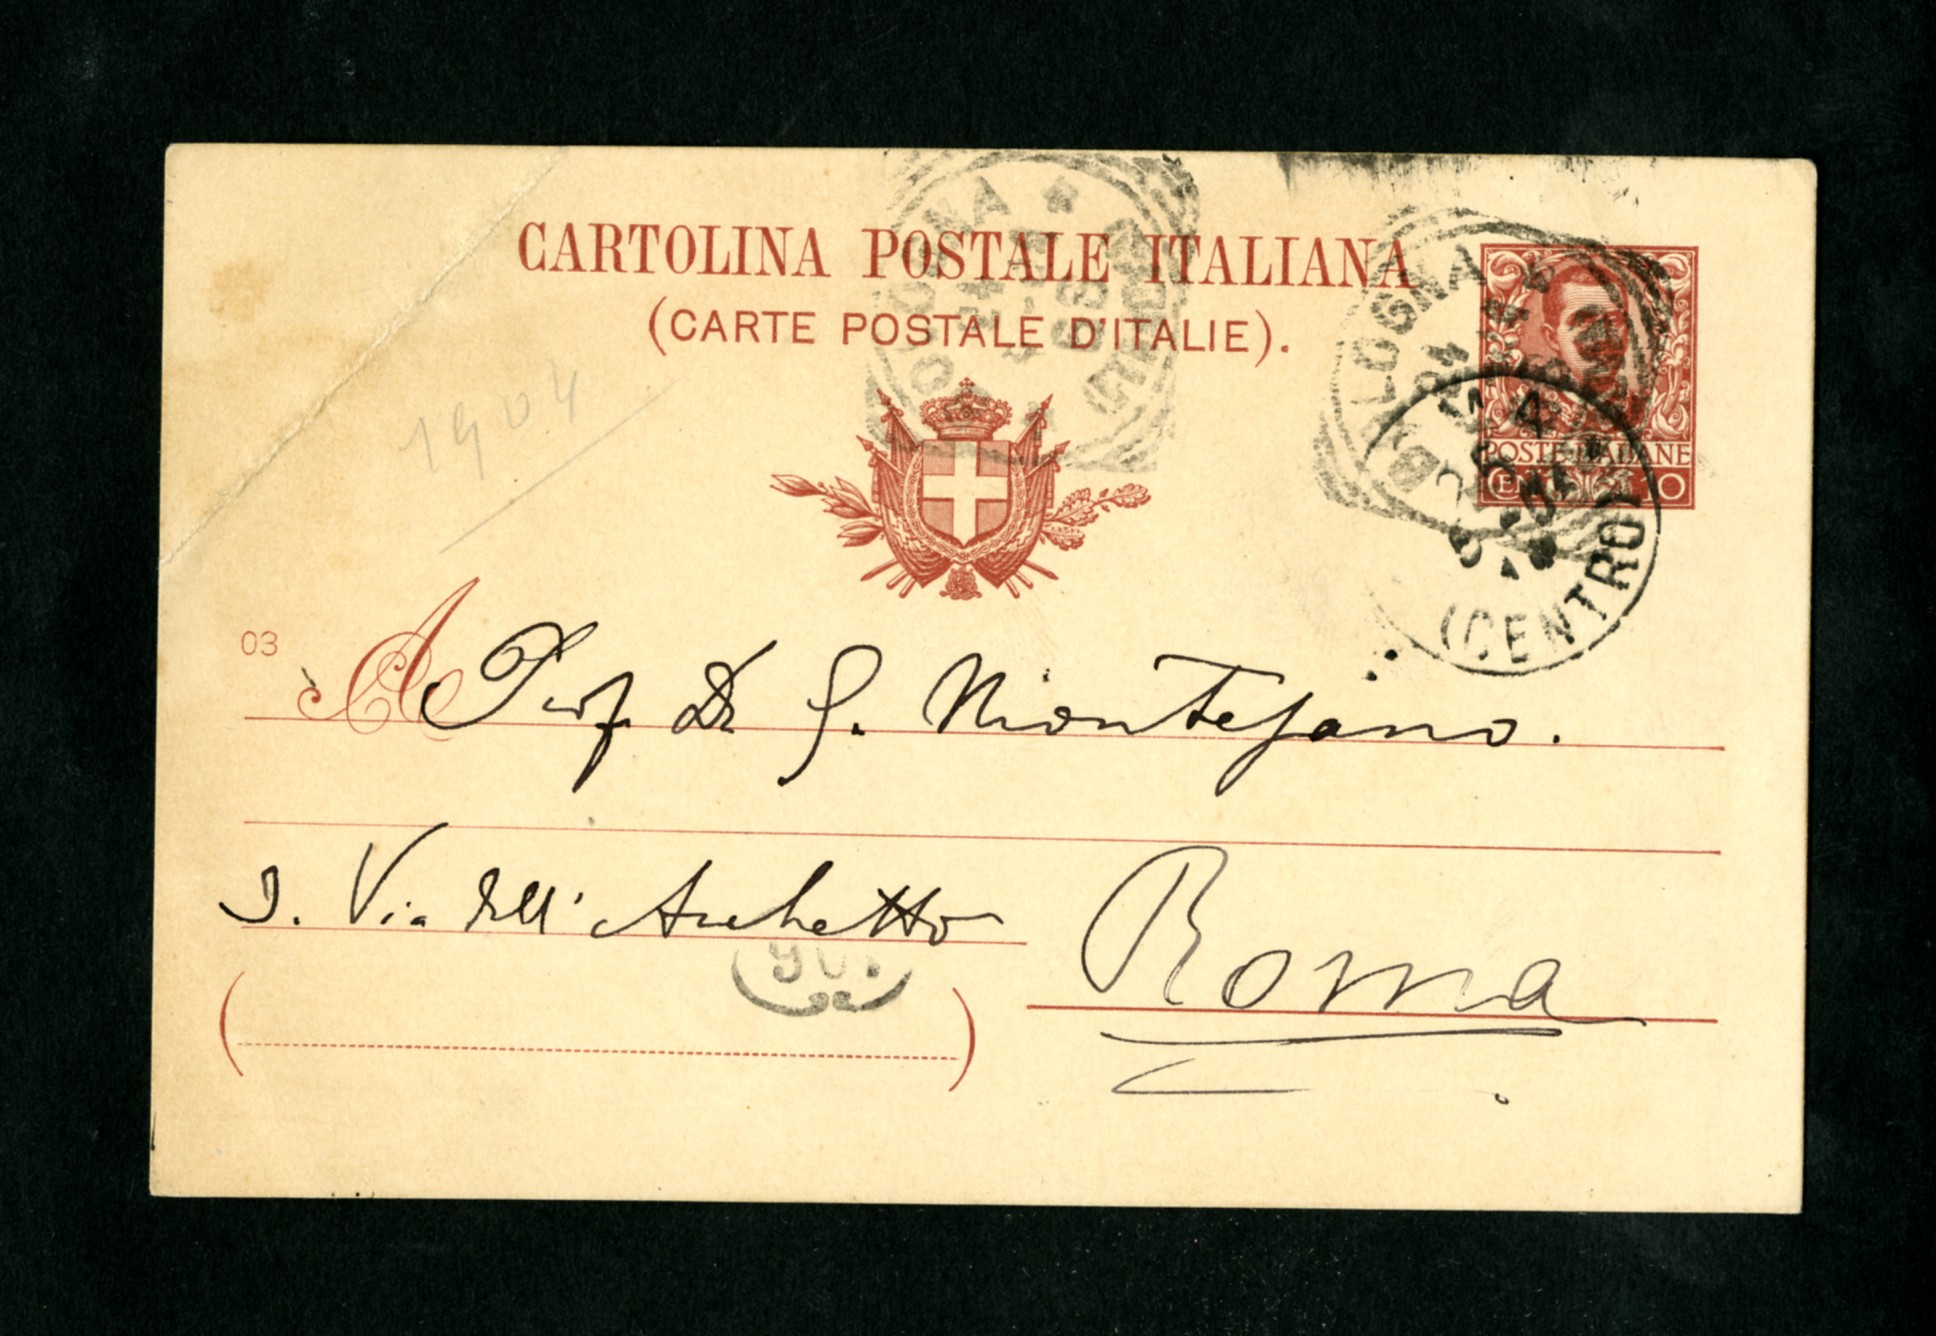 CARTOLINA POSTALE ITALIANA
(CARTE POSTALE D'ITALIE).
BOLOGNA
BOLOGNA
POSTE ITALIANE
CENT. 10
(CENTRO)
1904
03
A Prof. Dr G. Montesano.
Via dell' Archetto
Roma